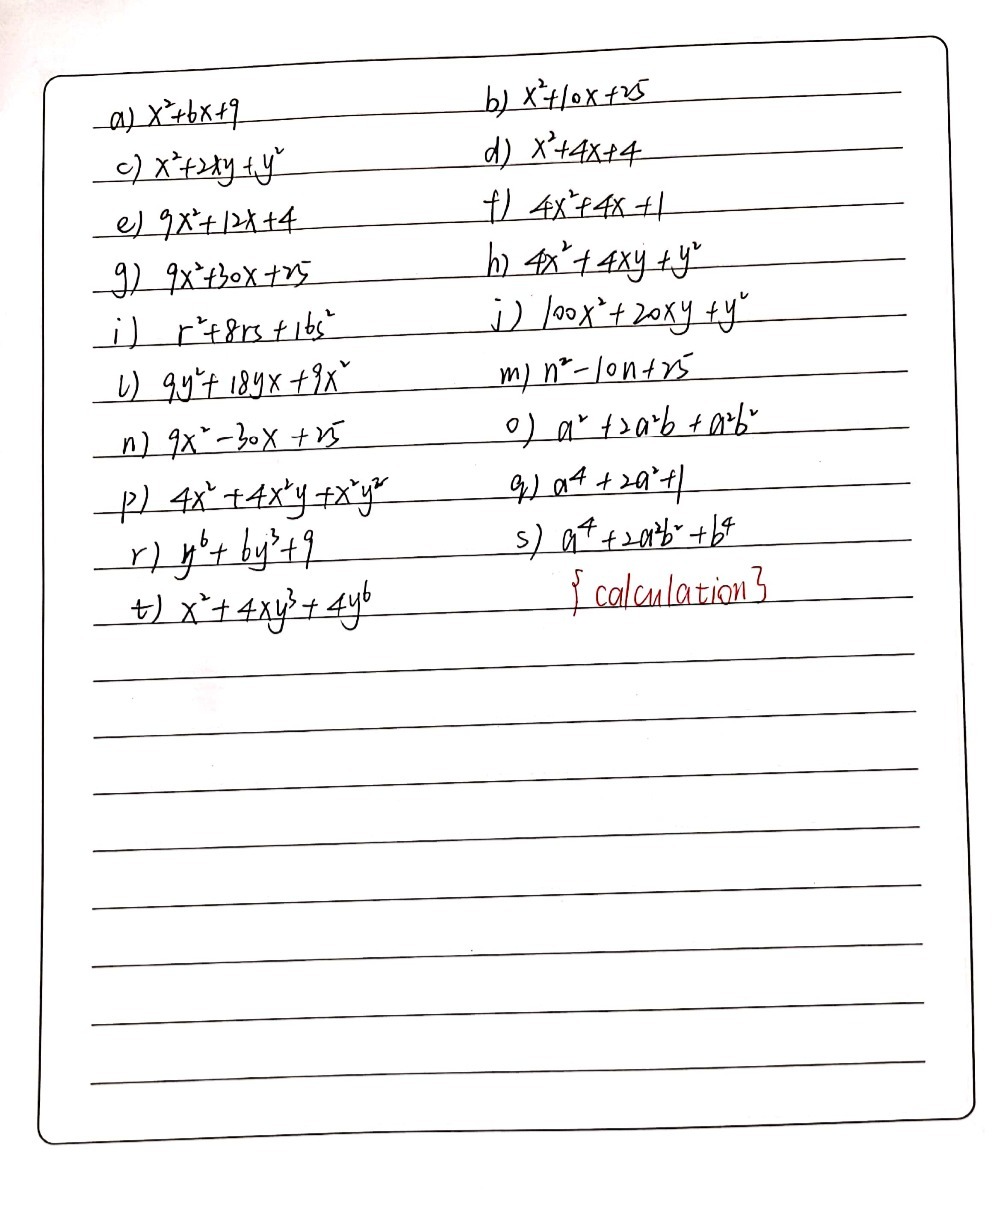 a) x²+6x+9 b) x²+10x+25
c) x²+2xy+y² d) x²+4x+4
e) 9x²+12x+4 f) 4x²+4x+1
g) 9x²+30x+25 h) 4x²+4xy+y²
i) r²+8rs+16s² j) 100x²+20xy+y²
l) 9y²+18yx+9x² m) n²-10n+25
n) 9x²-30x+25 o) a²+2a²b+a²b²
p) 4x²+4x²y+x²y² q) a⁴+2a²+1
r) y⁶+6y³+9 s) a⁴+2a²b²+b⁴
t) x²+4xy³+4y⁶ {calculation}